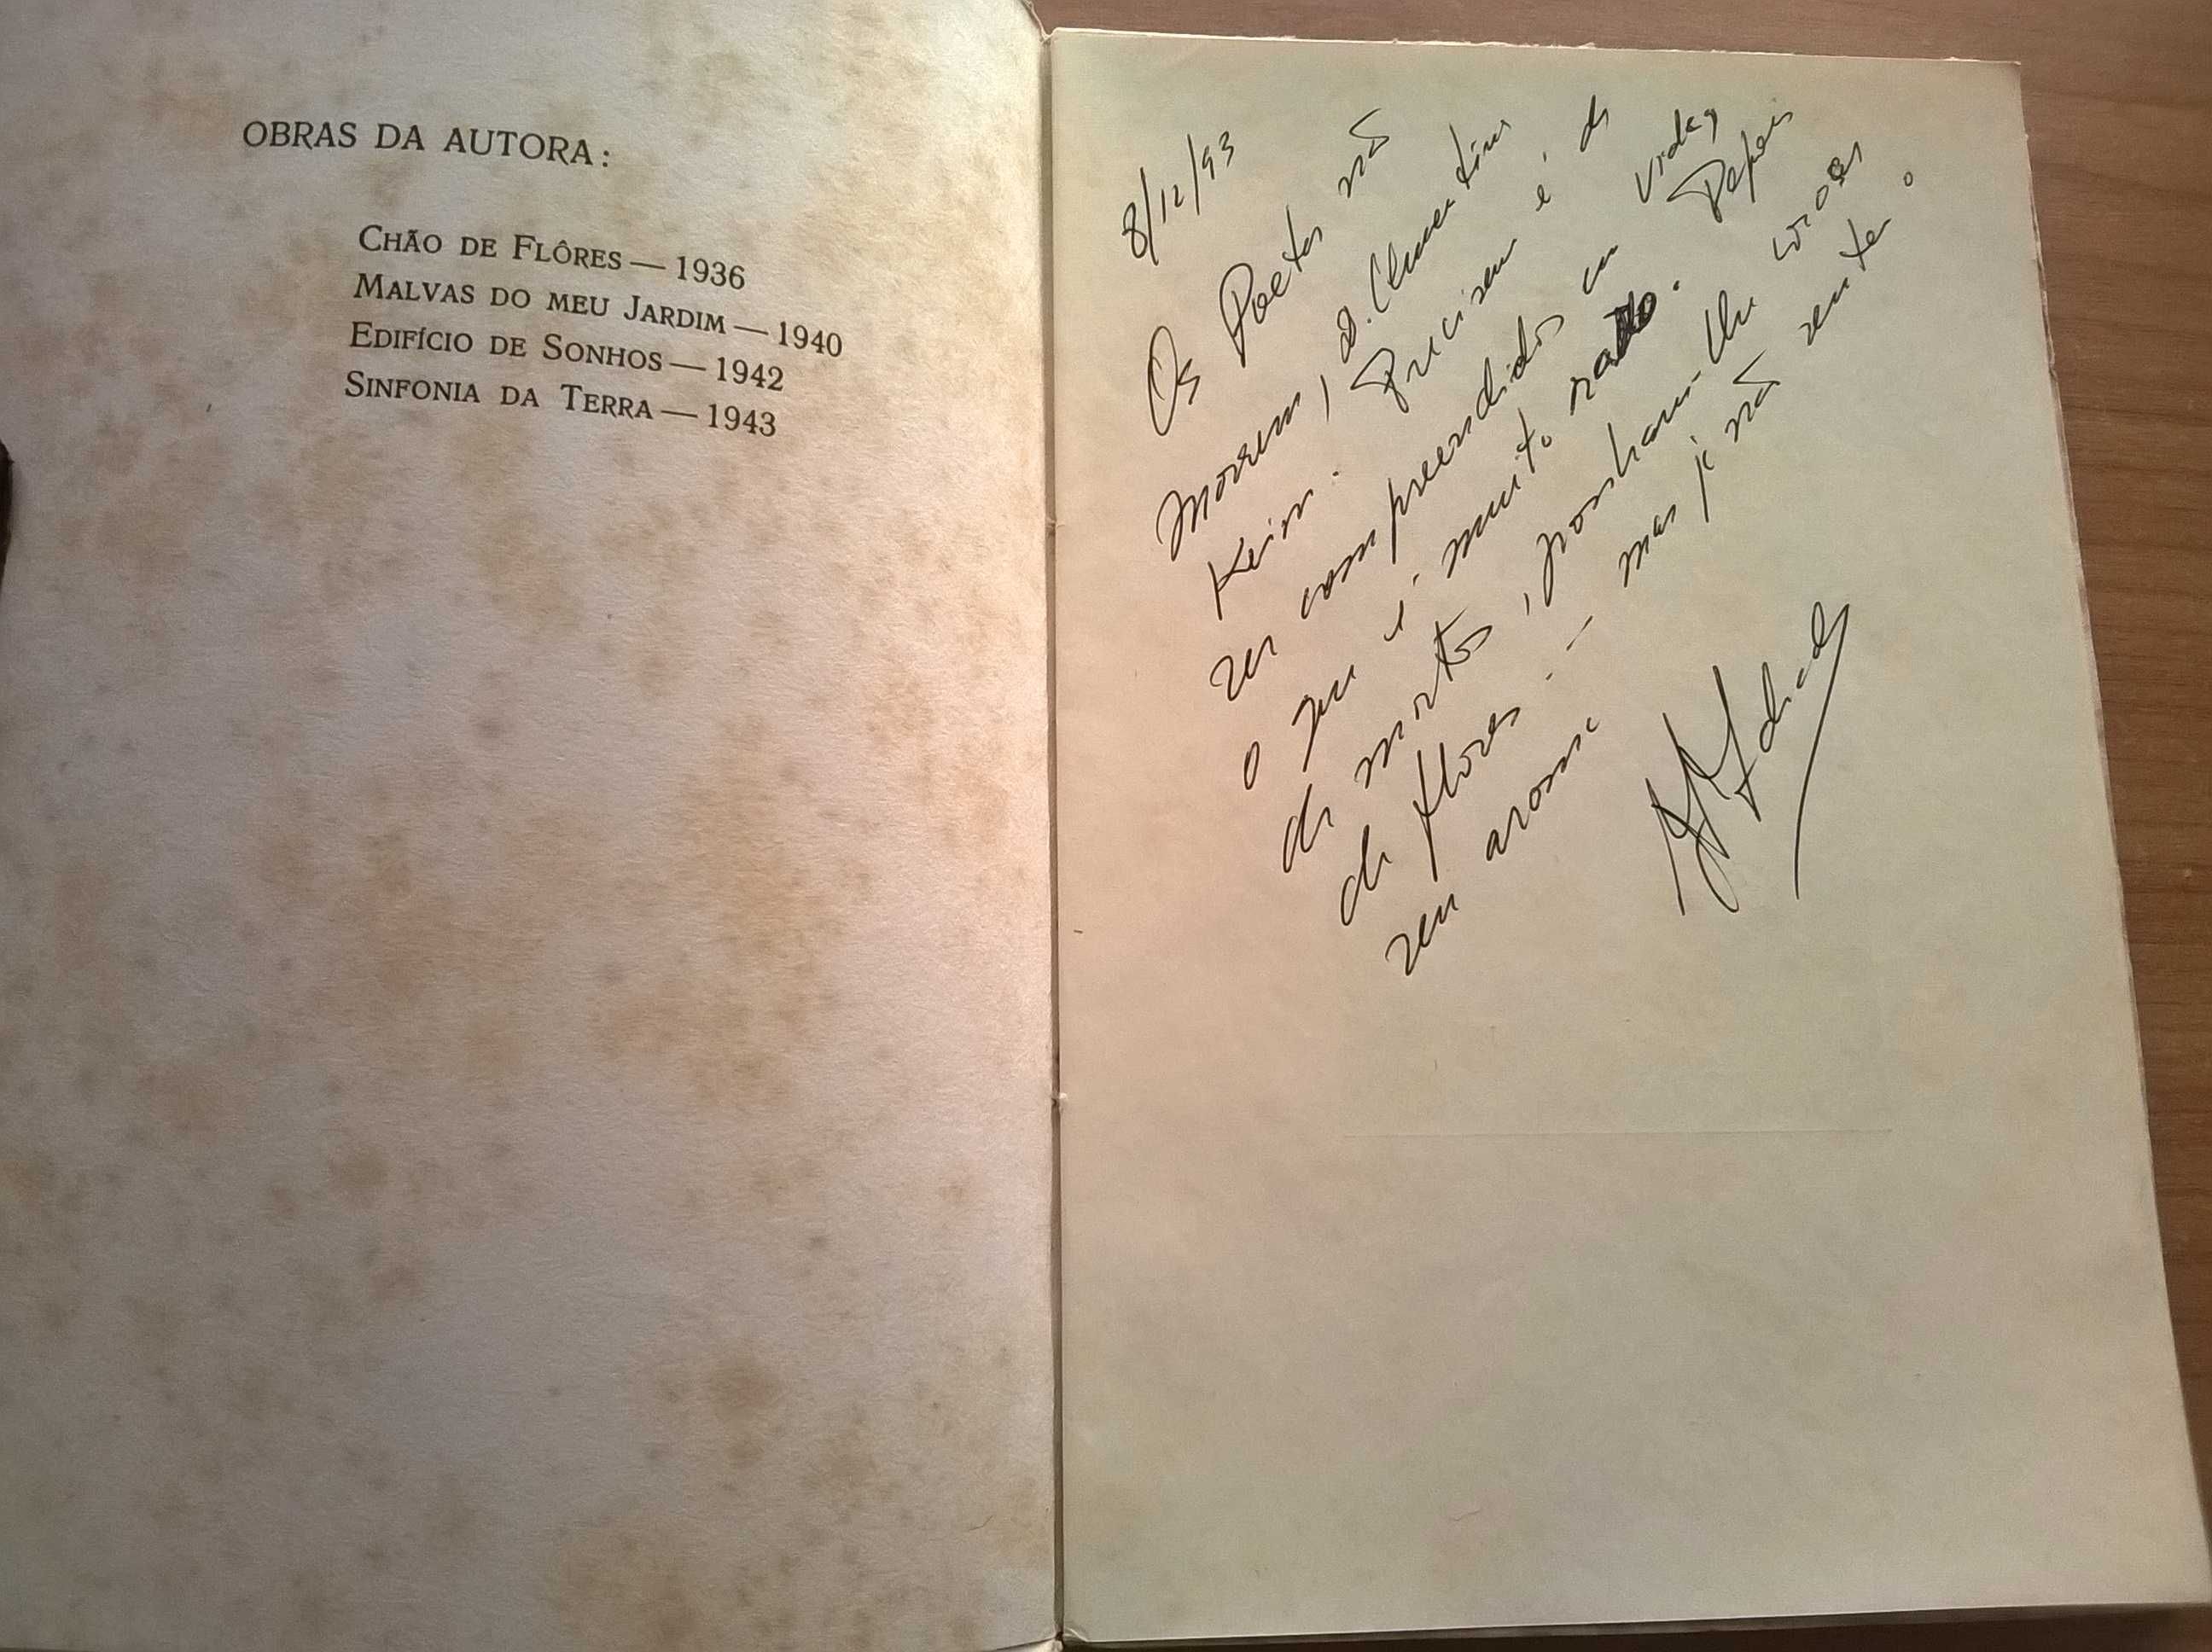 OBRAS DA AUTORA:
CHÃO DE FLÔRES — 1936
MALVAS DO MEU JARDIM — 1940
EDIFÍCIO DE SONHOS — 1942
SINFONIA DA TERRA — 1943
8/12/93
Os Poetas não
morrem, D. Clementina
Keim. Precisam é de
ser compreendidos em vida,
o que é muito raro. Depois
de mortos, ponham-lhe coroas
de flores. — mas já não sentem o
seu aroma